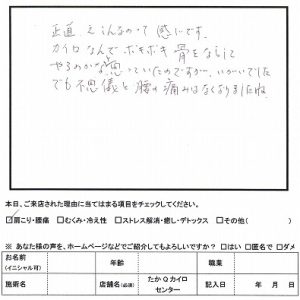 正直 えこんなのって 感じです。
カイロなんで ボキボキ 骨をならして
やるのかな思っていたのですが、いがいでした
でも不思儀と 腰の痛みはなくなりましたね
本日、ご来店された理由に当てはまる項目をチェックしてください。
☑肩こり・腰痛 □むくみ・冷え性 □ストレス解消・癒し・デトックス □その他( )
※ あなた様の声を、ホームページなどでご紹介してもよろしいですか? □はい □匿名で □ダメ
お名前 (イニシャル可) 年齢 職業
施術名 店舗名(必須) たかQカイロセンター 記入日 年 月 日